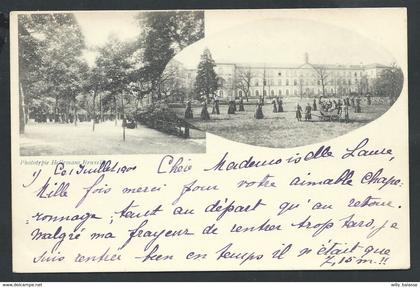 Phototypie Hellemans Bruxel
1) Ce 1 Juillet 1901 Chère Mademoiselle Laure,
Mille fois merci pour votre aimable chape-
ronnage; tant au départ qu'au retour.
Malgré ma frayeur de rentrer trop tard, je
suis rentrée bien en temps il n'était que
7,15 m.!!
www.delcampe.net
willy.balasse